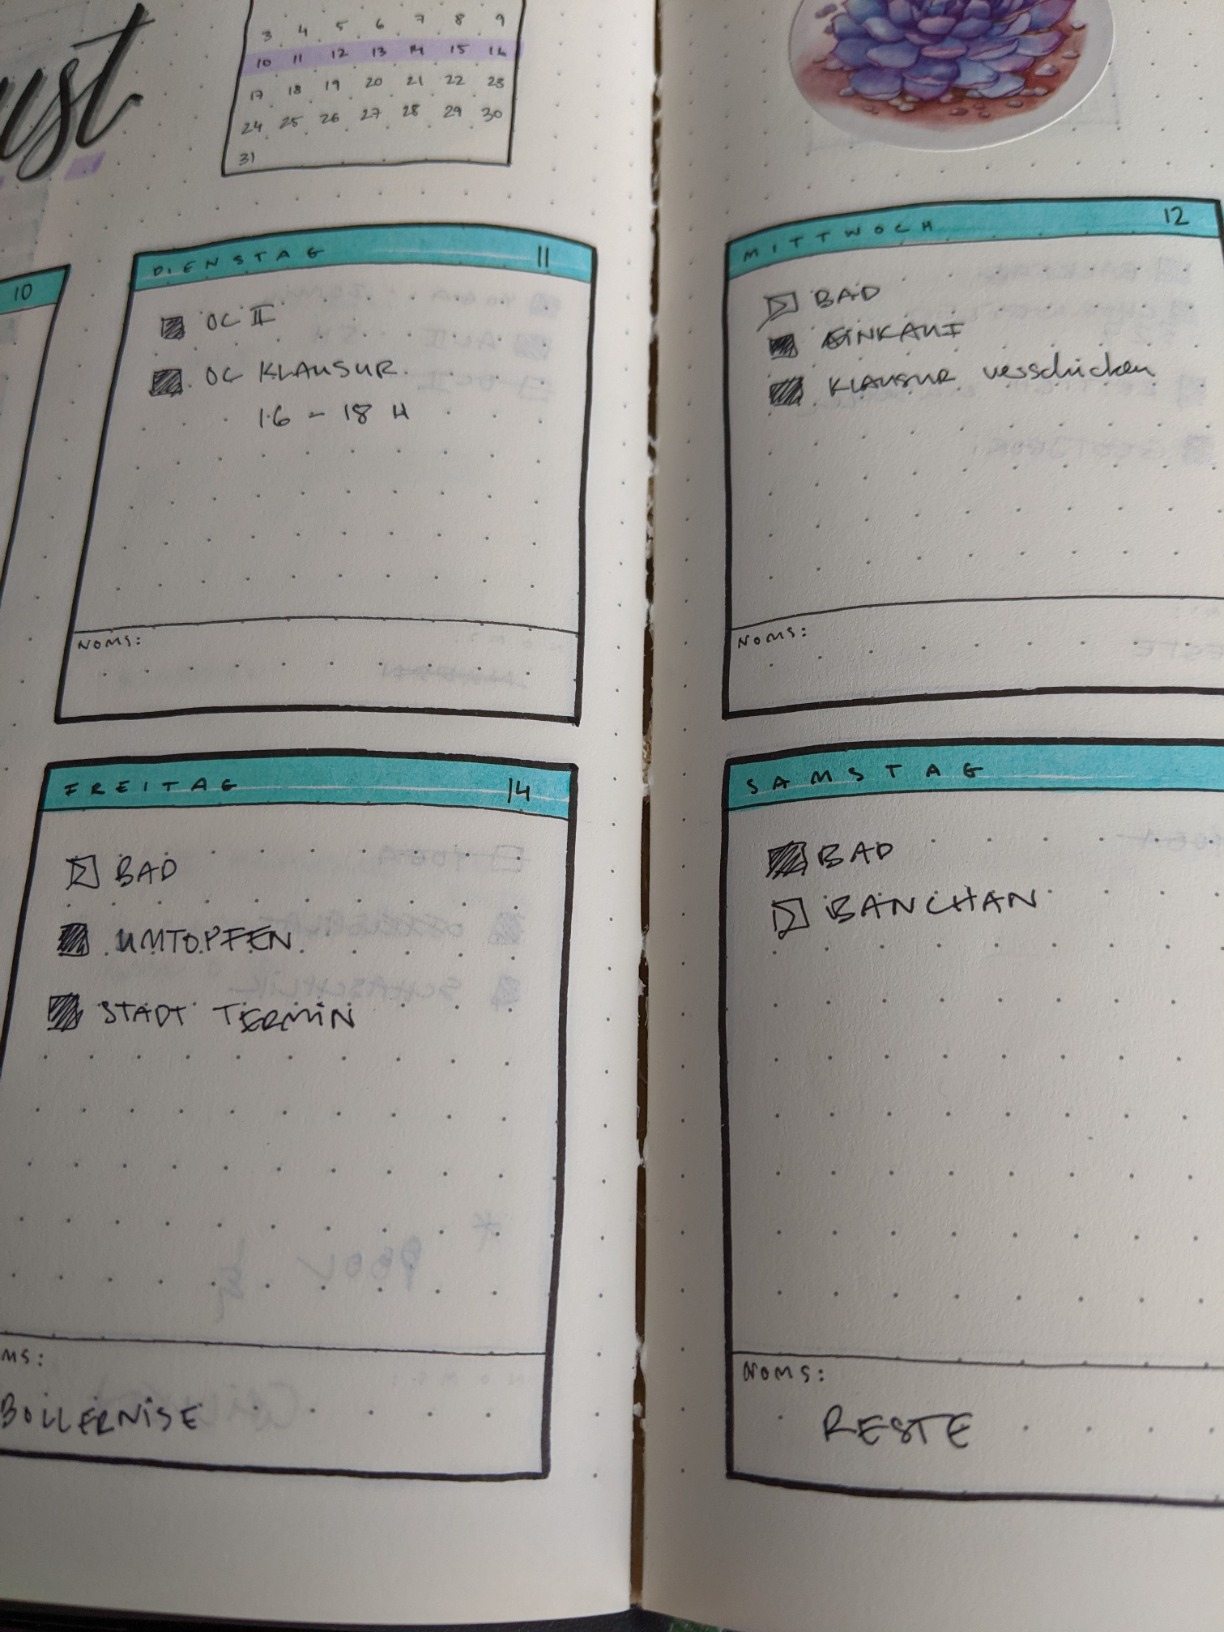 ust
3 4 5 6 7 8 9
10 11 12 13 14 15 16
17 18 19 20 21 22 23
24 25 26 27 28 29 30
31
10
DIENSTAG 11
OC II
OC KLAUSUR
16 - 18 H
NOMS:
MITTWOCH 12
BAD
EINKAUF
KLAUSUR verschicken
NOMS:
FREITAG 14
BAD
UMTOPFEN
STADT TERMIN
MS:
SAMSTAG
BAD
BANCHAN
NOMS:
RESTE